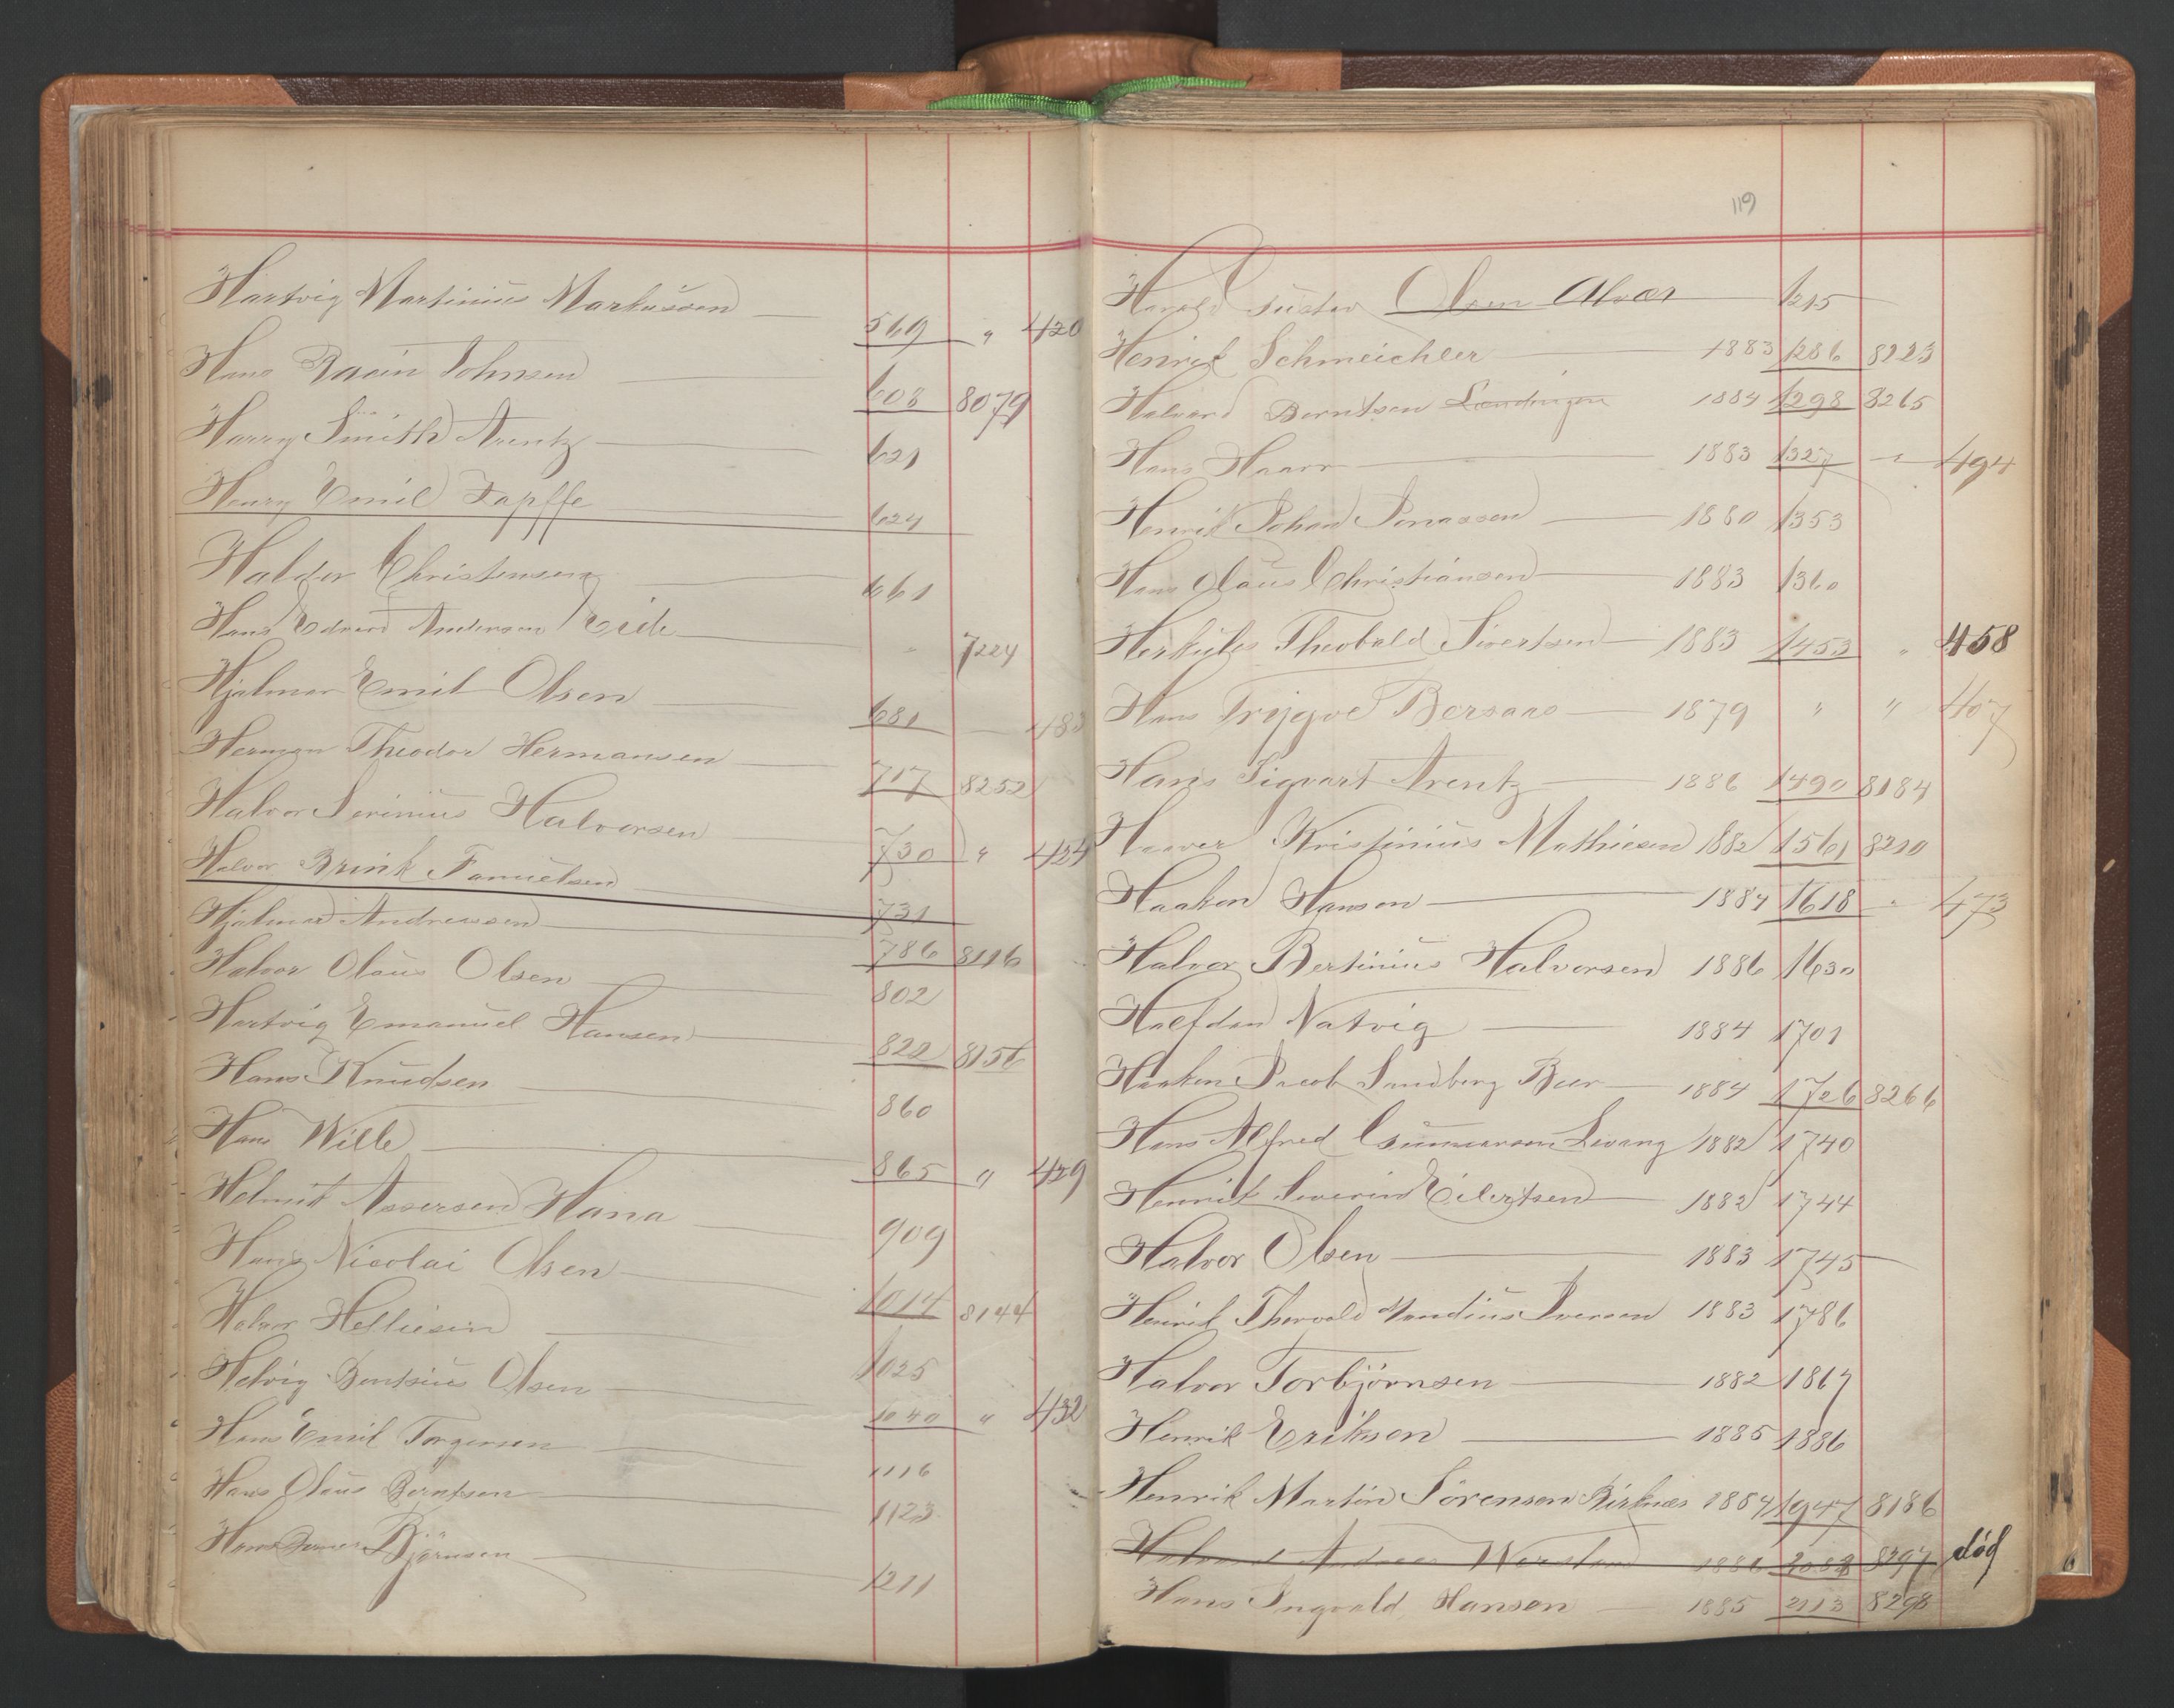 Hartvig Martinius Markussen — 569 " 420
Hans Johnsen — 608 8079
Harry Smith Arentz — 621
Henry Emil Zapffe — 624
Haldor Christensen — 661
Hans Edvard Andersen Eide — " 7224
Hjalmar Emil Olsen — 681 — 483
Herman Theodor Hermansen — 717 8252
Halvor Severinius Halvorsen — 730 " 424
Halvor Brink Samuelsen — 731
Hjalmar Andreassen — 786 8116
Halvor Olaus Olsen — 802
Hartvig Emanuel Hansen — 822 8156
Hans Knudsen — 860
Hans Wille — 865 " 429
Helmik Assersen Hana — 909
Hans Nicolai Olsen — 1014 8144
Halvor Helliesen — 1025
Helvig Bentsius Olsen — 1040 " 432
Hans Emil Torgersen — 1116
Hans Olaus Berntsen — 1123
Hans Bjørnsen — 1211
119
Harald Gustav Olsen Alvær — 1215
Henrik Schmeichler — 1883 1286 8223
Halvard Berntsen Lændingen 1884 1298 8265
Hans Haarr — 1883 1327 " 494
Henrik Johan Jonassen — 1880 1353
Hans Olaus Christiansen — 1883 1360
Herkules Theobald Sivertsen — 1883 1453 " 458
Hans Trygve Bersaas — 1879 " " 407
Hans Sigvart Arentz — 1886 1490 8184
Haaver Kristinius Mathiesen 1882 1561 8210
Haakon Hansen — 1884 1618 " 473
Halvor Bertinius Halvorsen 1886 1630
Halfdan Natvig — 1884 1701
Haakon Jacob Sundberg Beer — 1884 1726 8266
Hans Alfred Gunnarsen Levang 1882 1740
Henrik Severin Eilertsen — 1882 1744
Halvor Olsen — 1883 1745
Henrik Thorvald Mandius Iversen 1883 1786
Halvor Torbjørnsen — 1882 1867
Henrik Eriksen — 1885 1886
Henrik Martin Sörensen Birknes 1884 1947 8186
Halvard Andreas 1886 2084 8297 död
Hans Ingvald Hansen — 1885 2113 8298